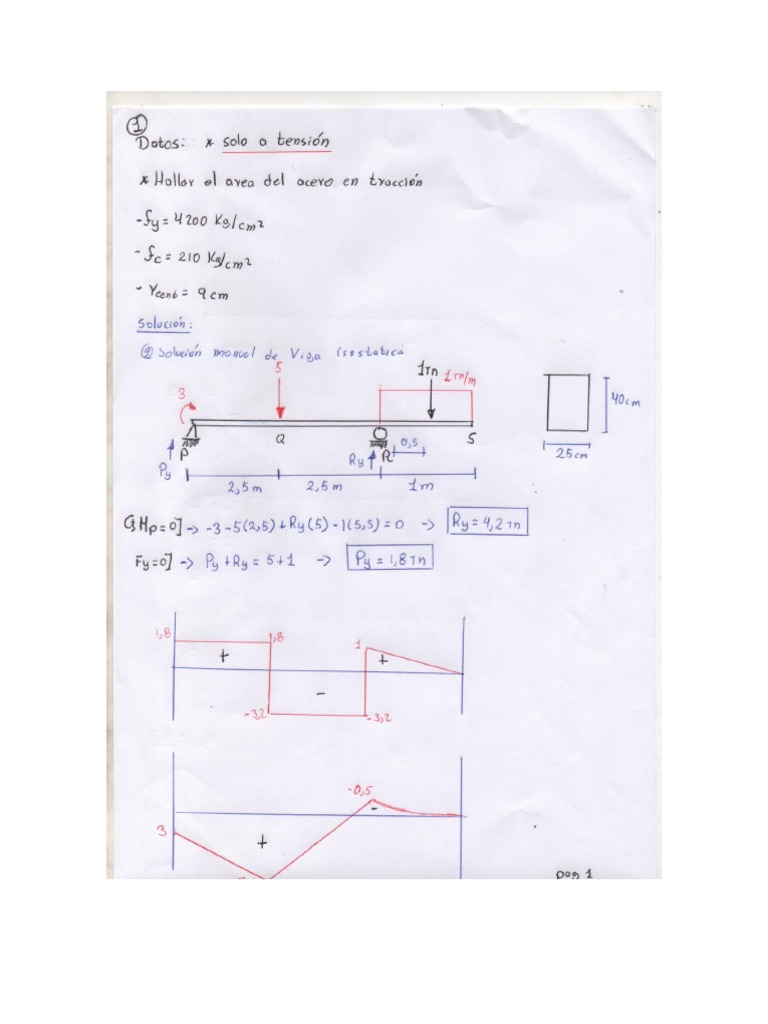 1
Datos: * solo a tensión
* Hallar el area del acero en tracción
- fy = 4200 Kg/cm²
- fc = 210 Kg/cm²
- rcent = 9 cm
Solución:
Solución manual de Viga isostatica
3 5 1Tn 1 Tn/m
40cm
P Q R S
Py Ry 0,5
25cm
2,5m 2,5m 1m
Mp=0] -> -3-5(2,5)+Ry(5)-1(5,5)=0 -> Ry=4,2 Tn
Fy=0] -> Py+Ry=5+1 -> Py=1,8 Tn
1,8 1,8 1
+ - +
-3,2 -3,2
-0,5
3 + -
pag 1